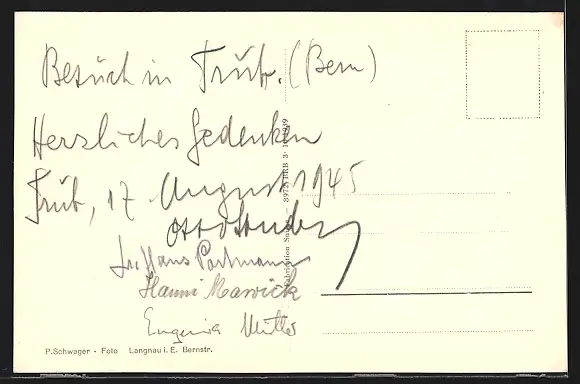 Besuch in Trub. (Bern)
Herzliches Gedenken
Trub, 17 August 1945
Otto Studer
Dr. Hans Portmann
Hanni Marwick
Eugenia
Fabrication
P. Schwager - Foto Langnau i. E. Bernstr.